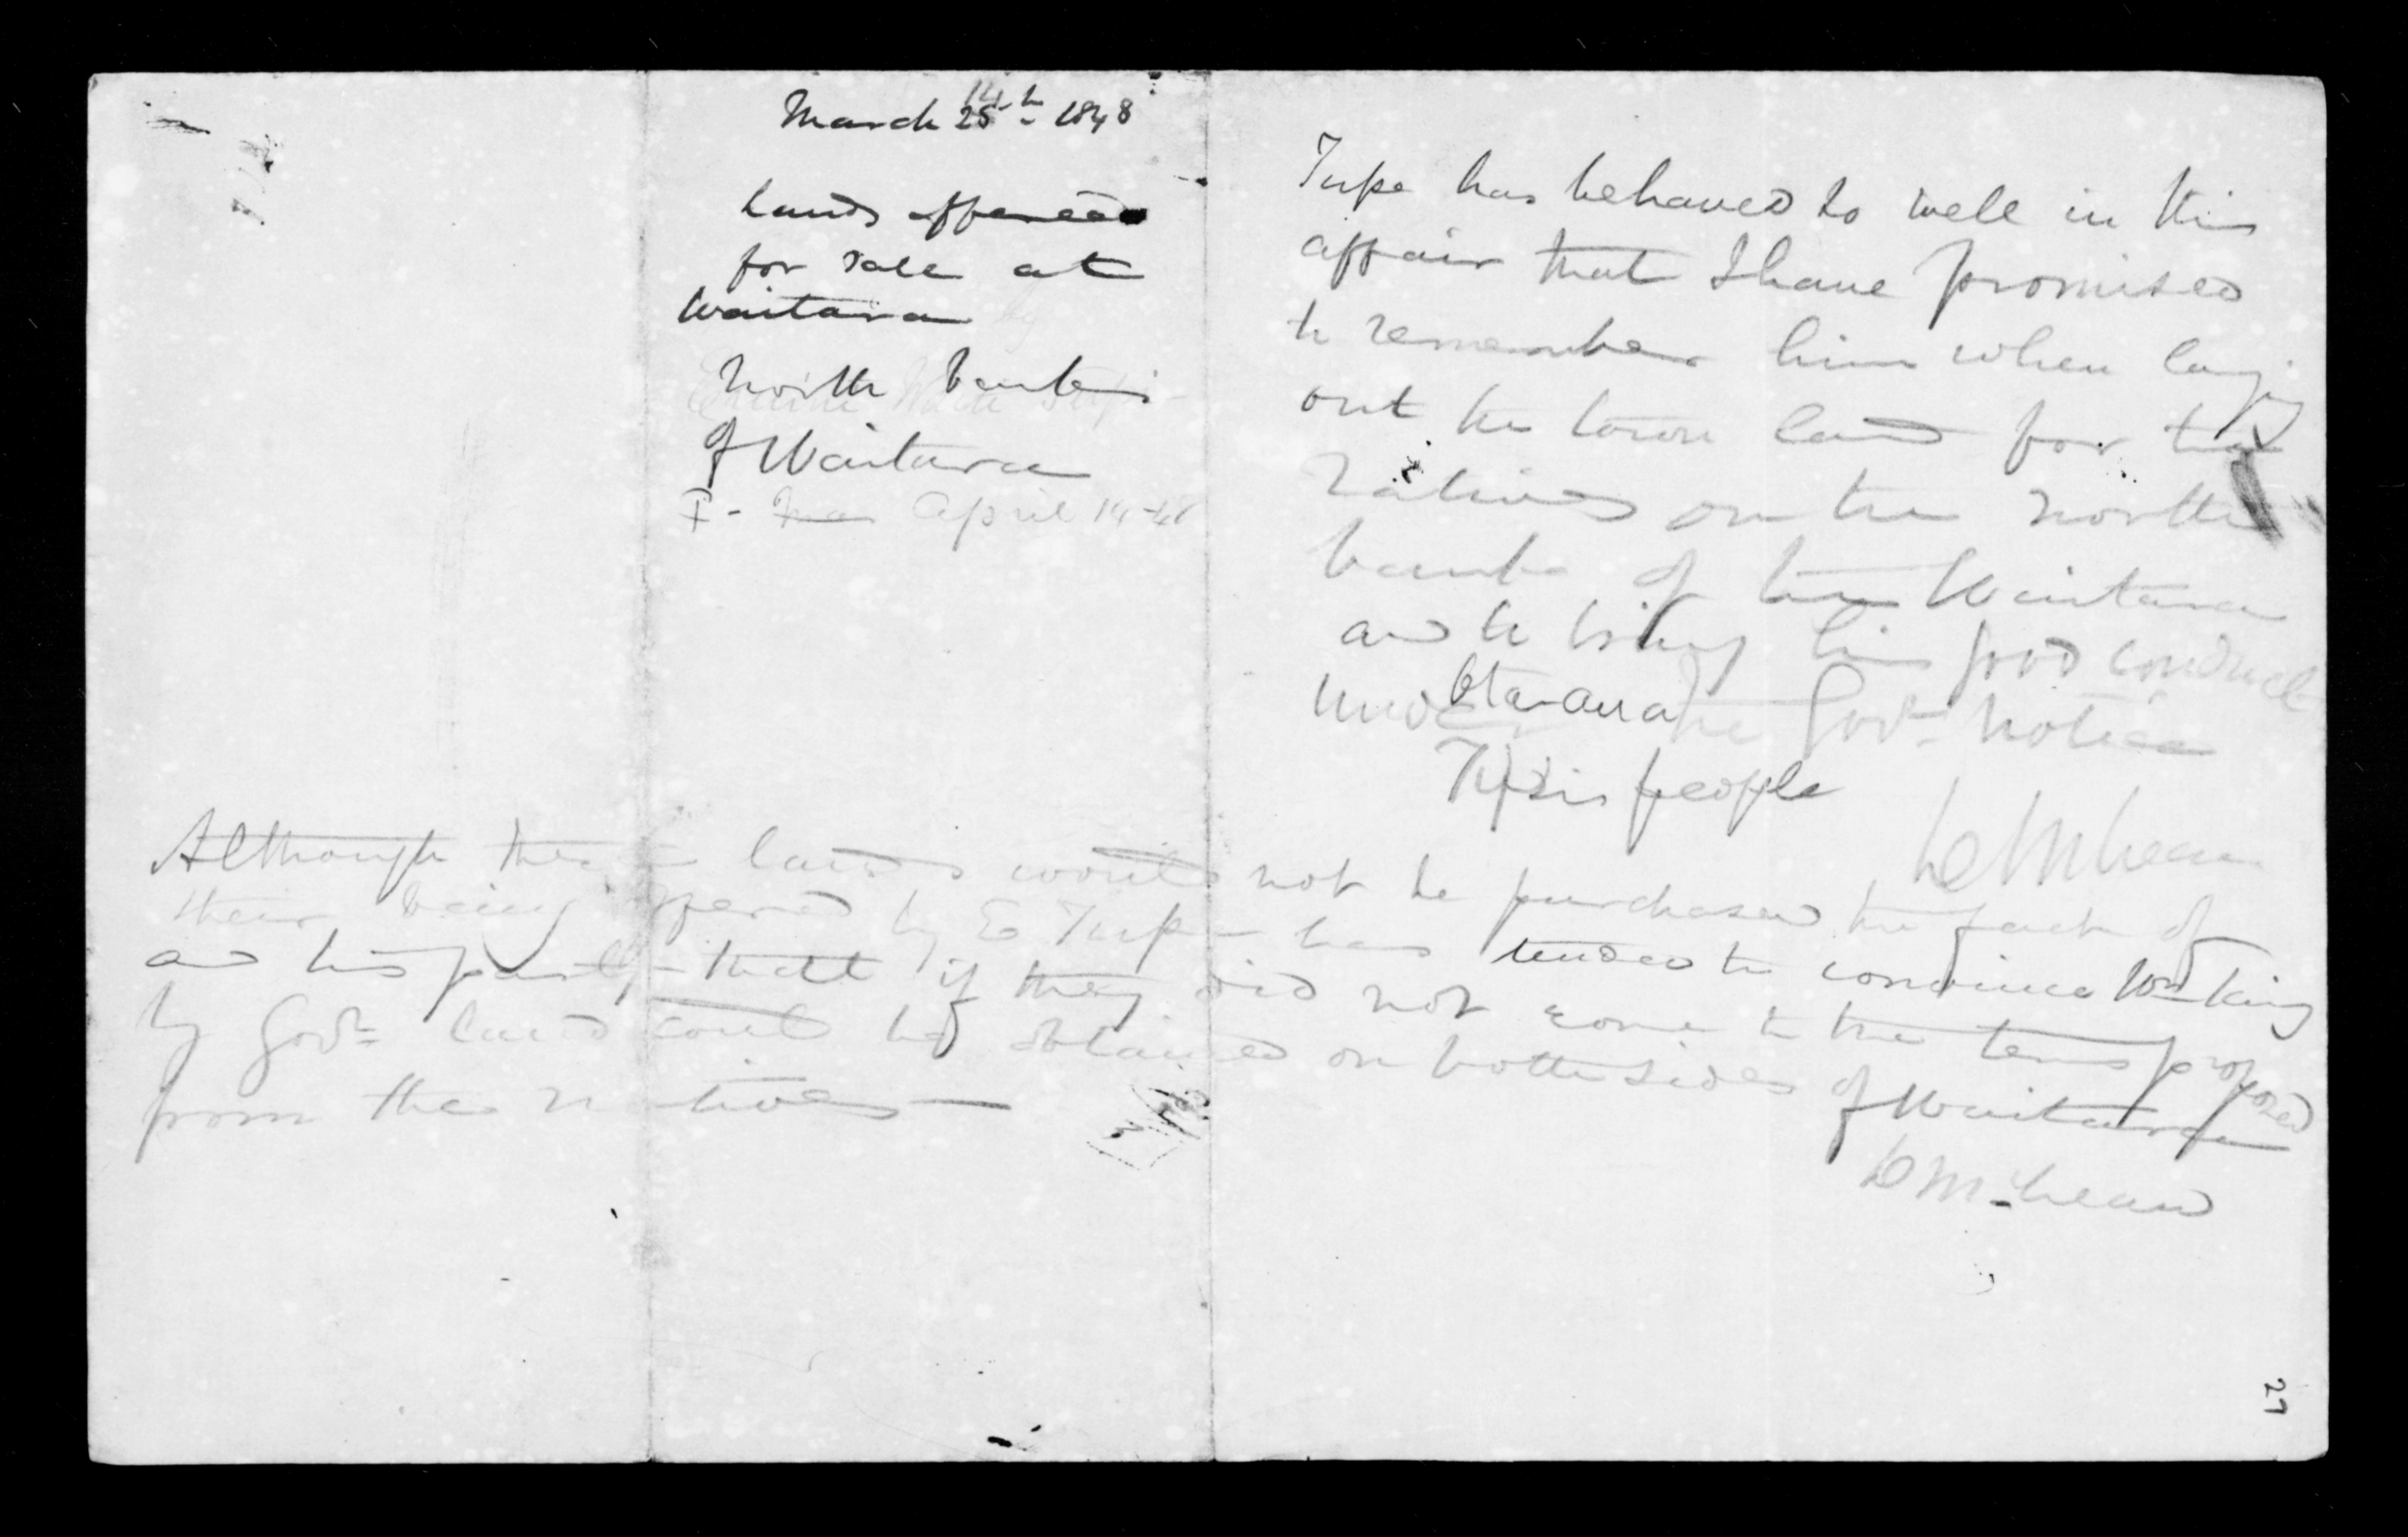 March 25th 1848
14
Lands offered
for sale at
Waitara
North banks
of Waitara
April 14-48
Tupe has behaved so well in this
affair that I have promised
to remember him when laying
out the town land for the
natives on the north
banks of the Waitara
and to bring his good conduct
under the Govt notice
people
D McLean
Although these lands would not be purchased the fact of
their being offered by E Tupe has tended to convince Wm King
and his party that if they did not come to the terms proposed
by Govt land could be obtained on both sides of Waitara
from the natives
D McLean
27